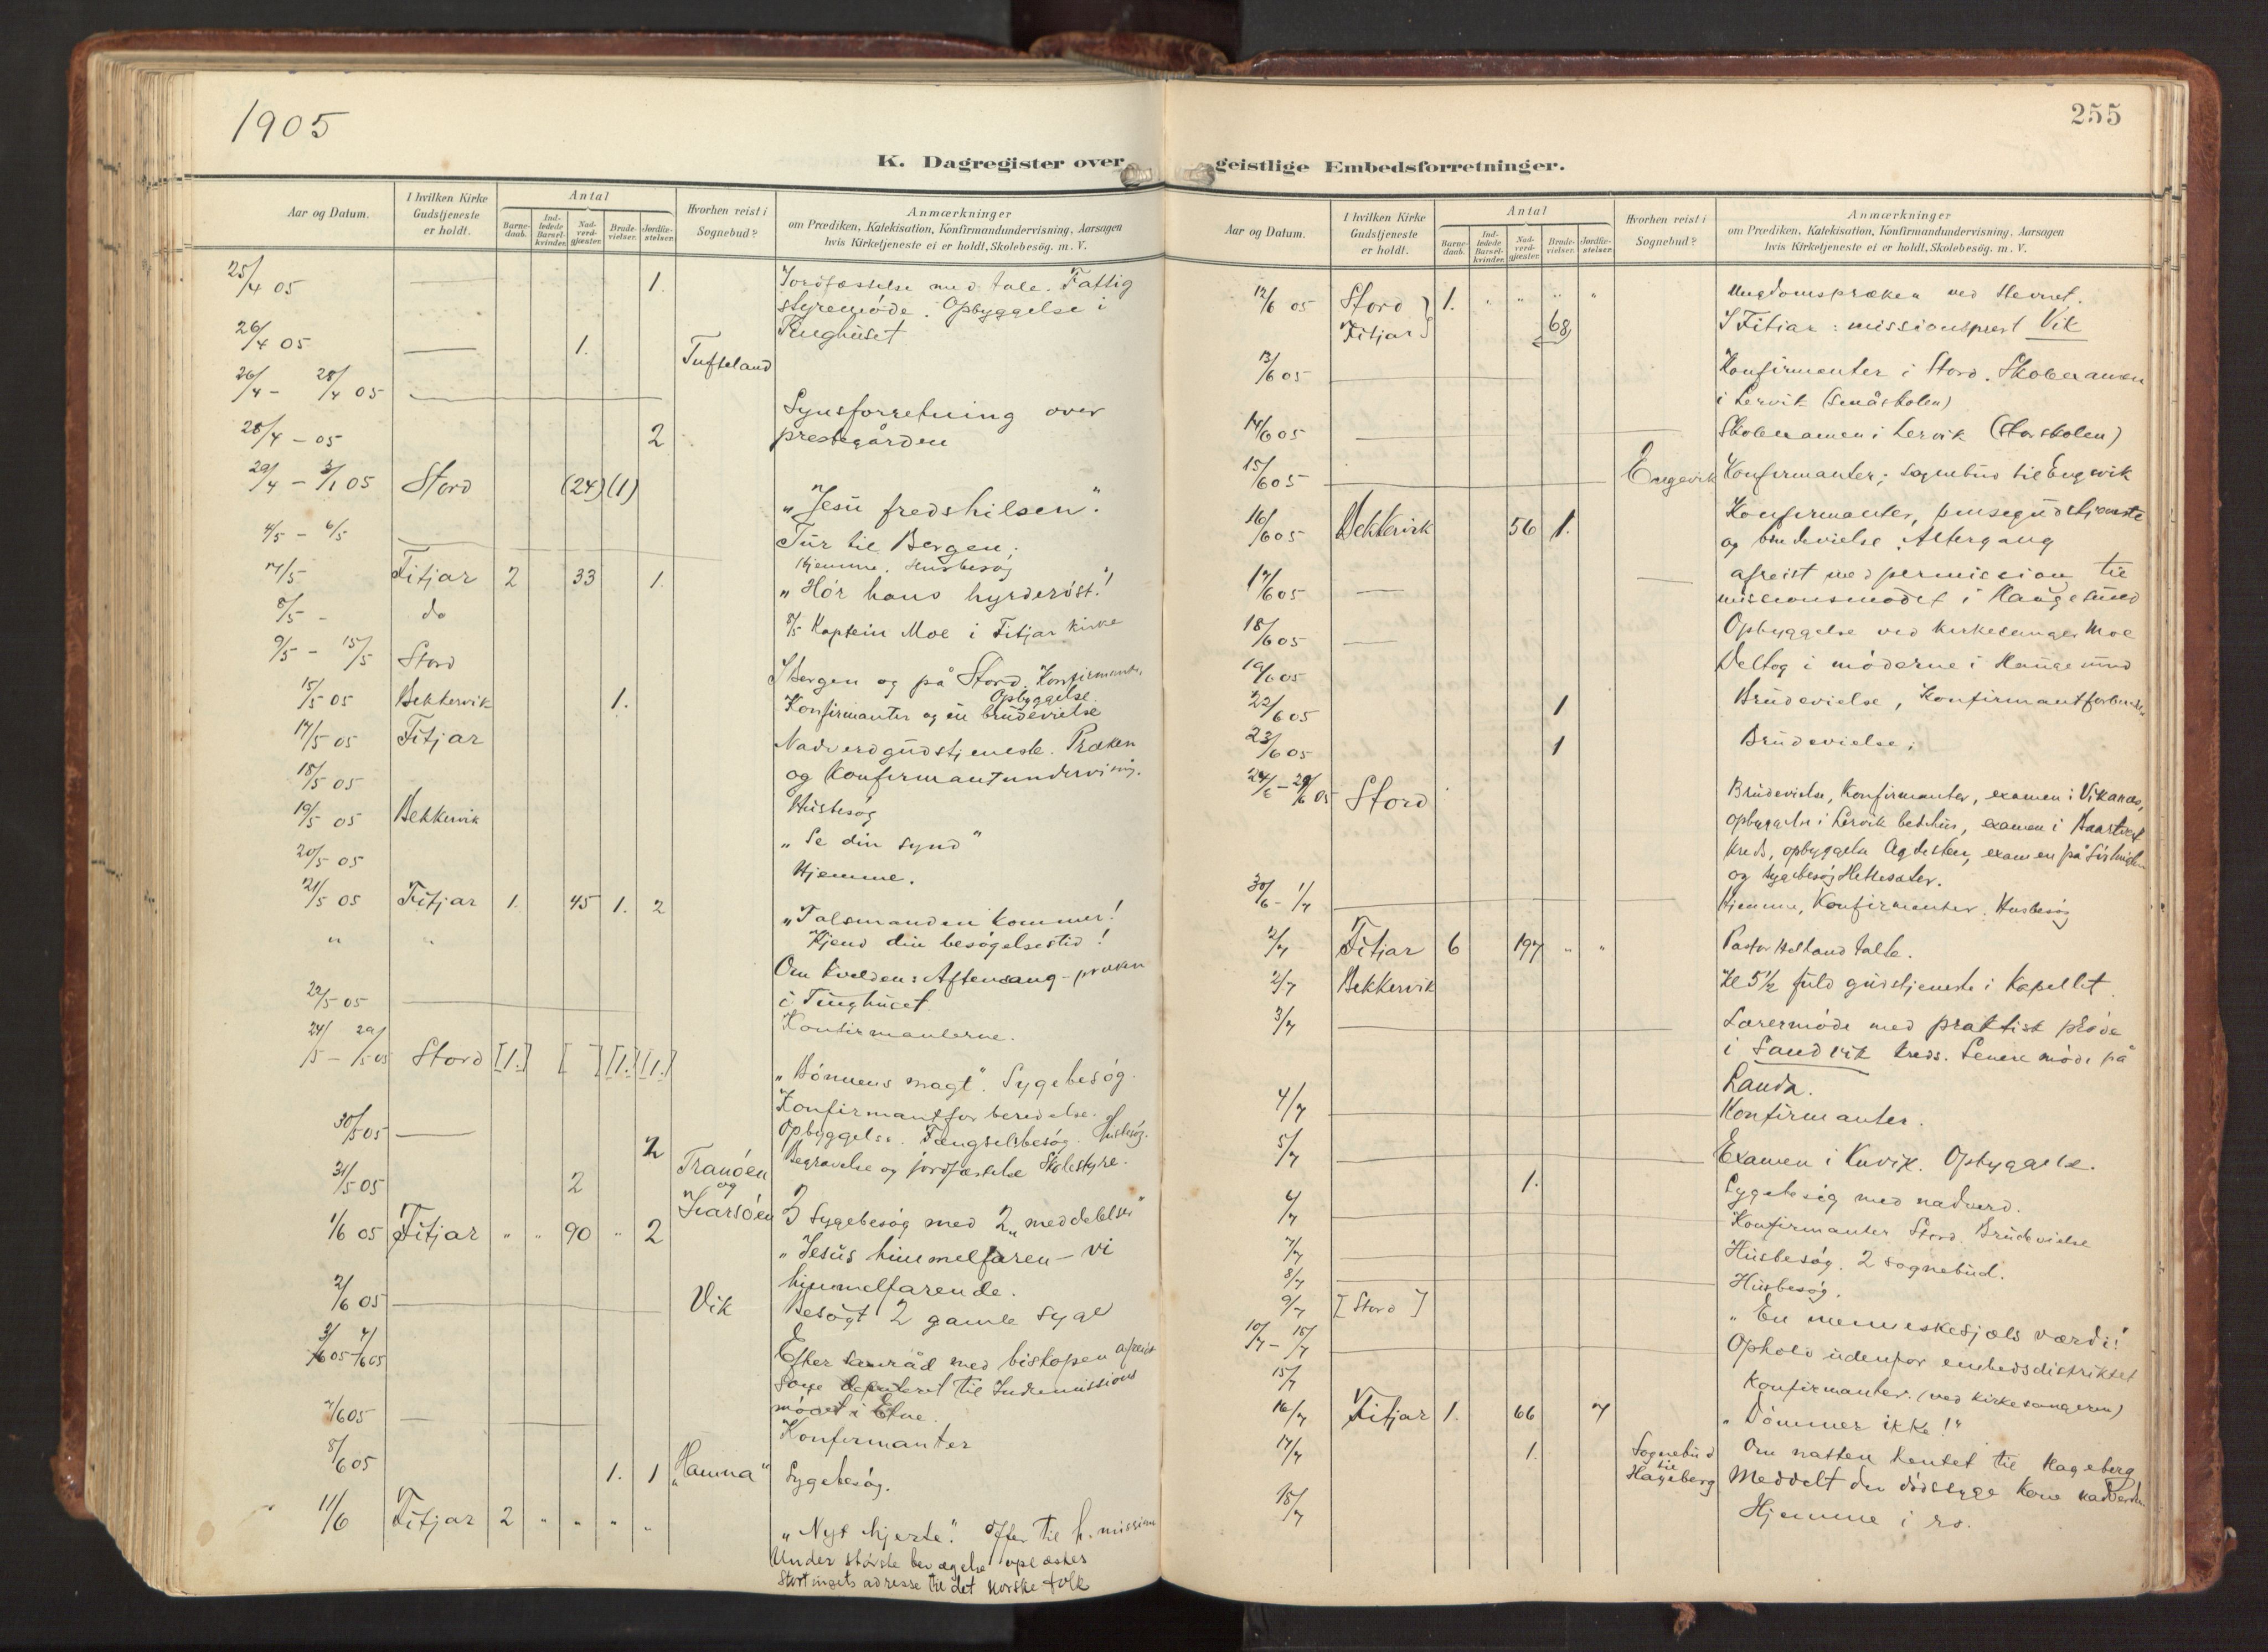 1905
K. Dagregister over
Aar og Datum.
I hvilken Kirke Gudstjeneste er holdt.
Antal
Barne-daab.
Ind-ledede Barsel-kvinder.
Nad-verd-gjæster.
Brude-vielser.
Jordfæ-stelser.
Hvorhen reist i Sognebud?
Anmærkninger
om Prædiken, Katekisation, Konfirmandundervisning, Aarsagen
hvis Kirketjeneste ei er holdt, Skolebesög. m. V.
25/4 05 1. Jordfæstelse med tale. Fattig
styremöde. Opbyggelse i
Tinghuset
26/4 05 1. Tufteland
26/4 - 28/4 05 Synsforretning over
28/4 - 05 2 prestegården
29/4 - 3/5 05 Stord (24) (1) "Jesu fredshilsen".
4/5 - 6/5 Tur til Bergen;
Hjemme. Husbesög
7/5 - Fitjar 2 33 1. "Hör hans hyrderöst!"
8/5 - do 8/5 Kaptein Moe i Fitjar kirke
9/5 - 15/5 Stord I Bergen og på Stord. Konfirmanter.
Opbyggelse.
15/5 05 Bekkervik 1. Konfirmanter og en brudevielse
17/5 05 Fitjar Nadverdgudstjeneste. Præken
18/5 05 og Konfirmantundervisnig.
19/5 05 Bekkervik Husbesög
"Se din synd"
20/5 05 Hjemme.
21/5 05 Fitjar 1. 45 1. 2 "Talsmanden kommer!
" " Kjend din besögelsestid!
Om kvelden: Aftensang-præken
22/5 05 i Tinghuset.
Konfirmanterne.
24/5 - 29/5 05 Stord [1.] [ ] [1.] [1.] "Bönnens magt". Sygebesög.
Konfirmantforberedelse.
30/5 05 2 Opbyggelse. Fængselsbesög. Husbesög.
Begravelse og jordfæstelse Skolestyre.
31/5 05 2 Tranöen
og
Ivarsöen 3 Sygebesög med 2 "meddelelser"
1/6 05 Fitjar " " 90 " 2 "Jesus himmelfaren - vi
himmelfarende.
2/6 05 Vik Besögt 2 gamle syge
3/6 05 - 4/6 05 Efter samråd med biskopen afreist
som deputeret til Indremissions
mödet i Etne.
7/6 05 Konfirmanter
8/6 05 1. 1 "Hamna" Sygebesög.
11/6 Fitjar 2 " " " " "Nyt hjerte". Offer til h. mission
Under störste bevægelse oplæstes
Stortingets adresse til det norske folk
255
geistlige Embedsforretninger.
Aar og Datum.
I hvilken Kirke Gudstjeneste er holdt.
Antal
Barne-daab.
Ind-ledede Barsel-kvinder.
Nad-verd-gjæster.
Brude-vielser.
Jordfæ-stelser.
Hvorhen reist i Sognebud?
Anmærkninger
om Prædiken, Katekisation, Konfirmandundervisning, Aarsagen
hvis Kirketjeneste ei er holdt, Skolebesög. m. V.
12/6 05 Stord } 1. " " " " Ungdomspræken ved
Fitjar } 68, I Fitjar: missionsprest Vik
13/6 05 Konfirmanter i Stord. Skoleexamen
i Lervik (Småskolen)
14/6 05 Skoleexamen i Lervik (Storskolen)
15/6 05 Engevik Konfirmanter; sognebud til Engevik
16/6 05 Bekkervik 56 1. Konfirmanter, pinsegudstjeneste
og brudevielse. Altergang
17/6 05 afreist med permission til
missionsmödet i Haugesund
18/6 05 Opbyggelse ved kirkesanger Moe
19/6 05 Deltog i möderne i Haugesund
22/6 05 1 Brudevielse, Konfirmantforber
23/6 05 1 Brudevielse;
24/6 - 29/6 05 Stord Brudevielse, Konfirmanter, examen i Vikanes,
opbyggelse i Lervik bedehus, examen i
kreds, opbyggelse Agdesten, examen på
og sygebesög Hettesæter.
30/6 - 1/7 Hjemme, Konfirmanter. Husbesög
2/7 Fitjar 6 197 " " Pastor Hetland talte.
2/7 Bekkervik Kl 5 1/2 fuld gudstjeneste i Kapellet.
3/7 Læreremöde med praktisk pröve
i Sandvik kreds. Senere möde på
Landa.
4/7 Konfirmanter.
5/7 Examen i Envik. Opbyggelse.
1. Sygebesög med nadverd.
6/7 Konfirmanter Stord. Brudevielse
7/7 Husbesög. 2 sognebud.
8/7 Husbesög.
9/7 [Stord] "En menneskesjæls værdi!"
10/7 - 15/7 Ophold udenfor embedsdistriktet
15/7 Konfirmanter. (ved kirkesangeren)
16/7 Fitjar 1. 66 7 "Dömmer ikke!"
17/7 1. Sognebud
til
Hageberg Om natten hentet til Hageberg
Meddelt den dödssyge kone nadverden
18/7 Hjemme i ro.